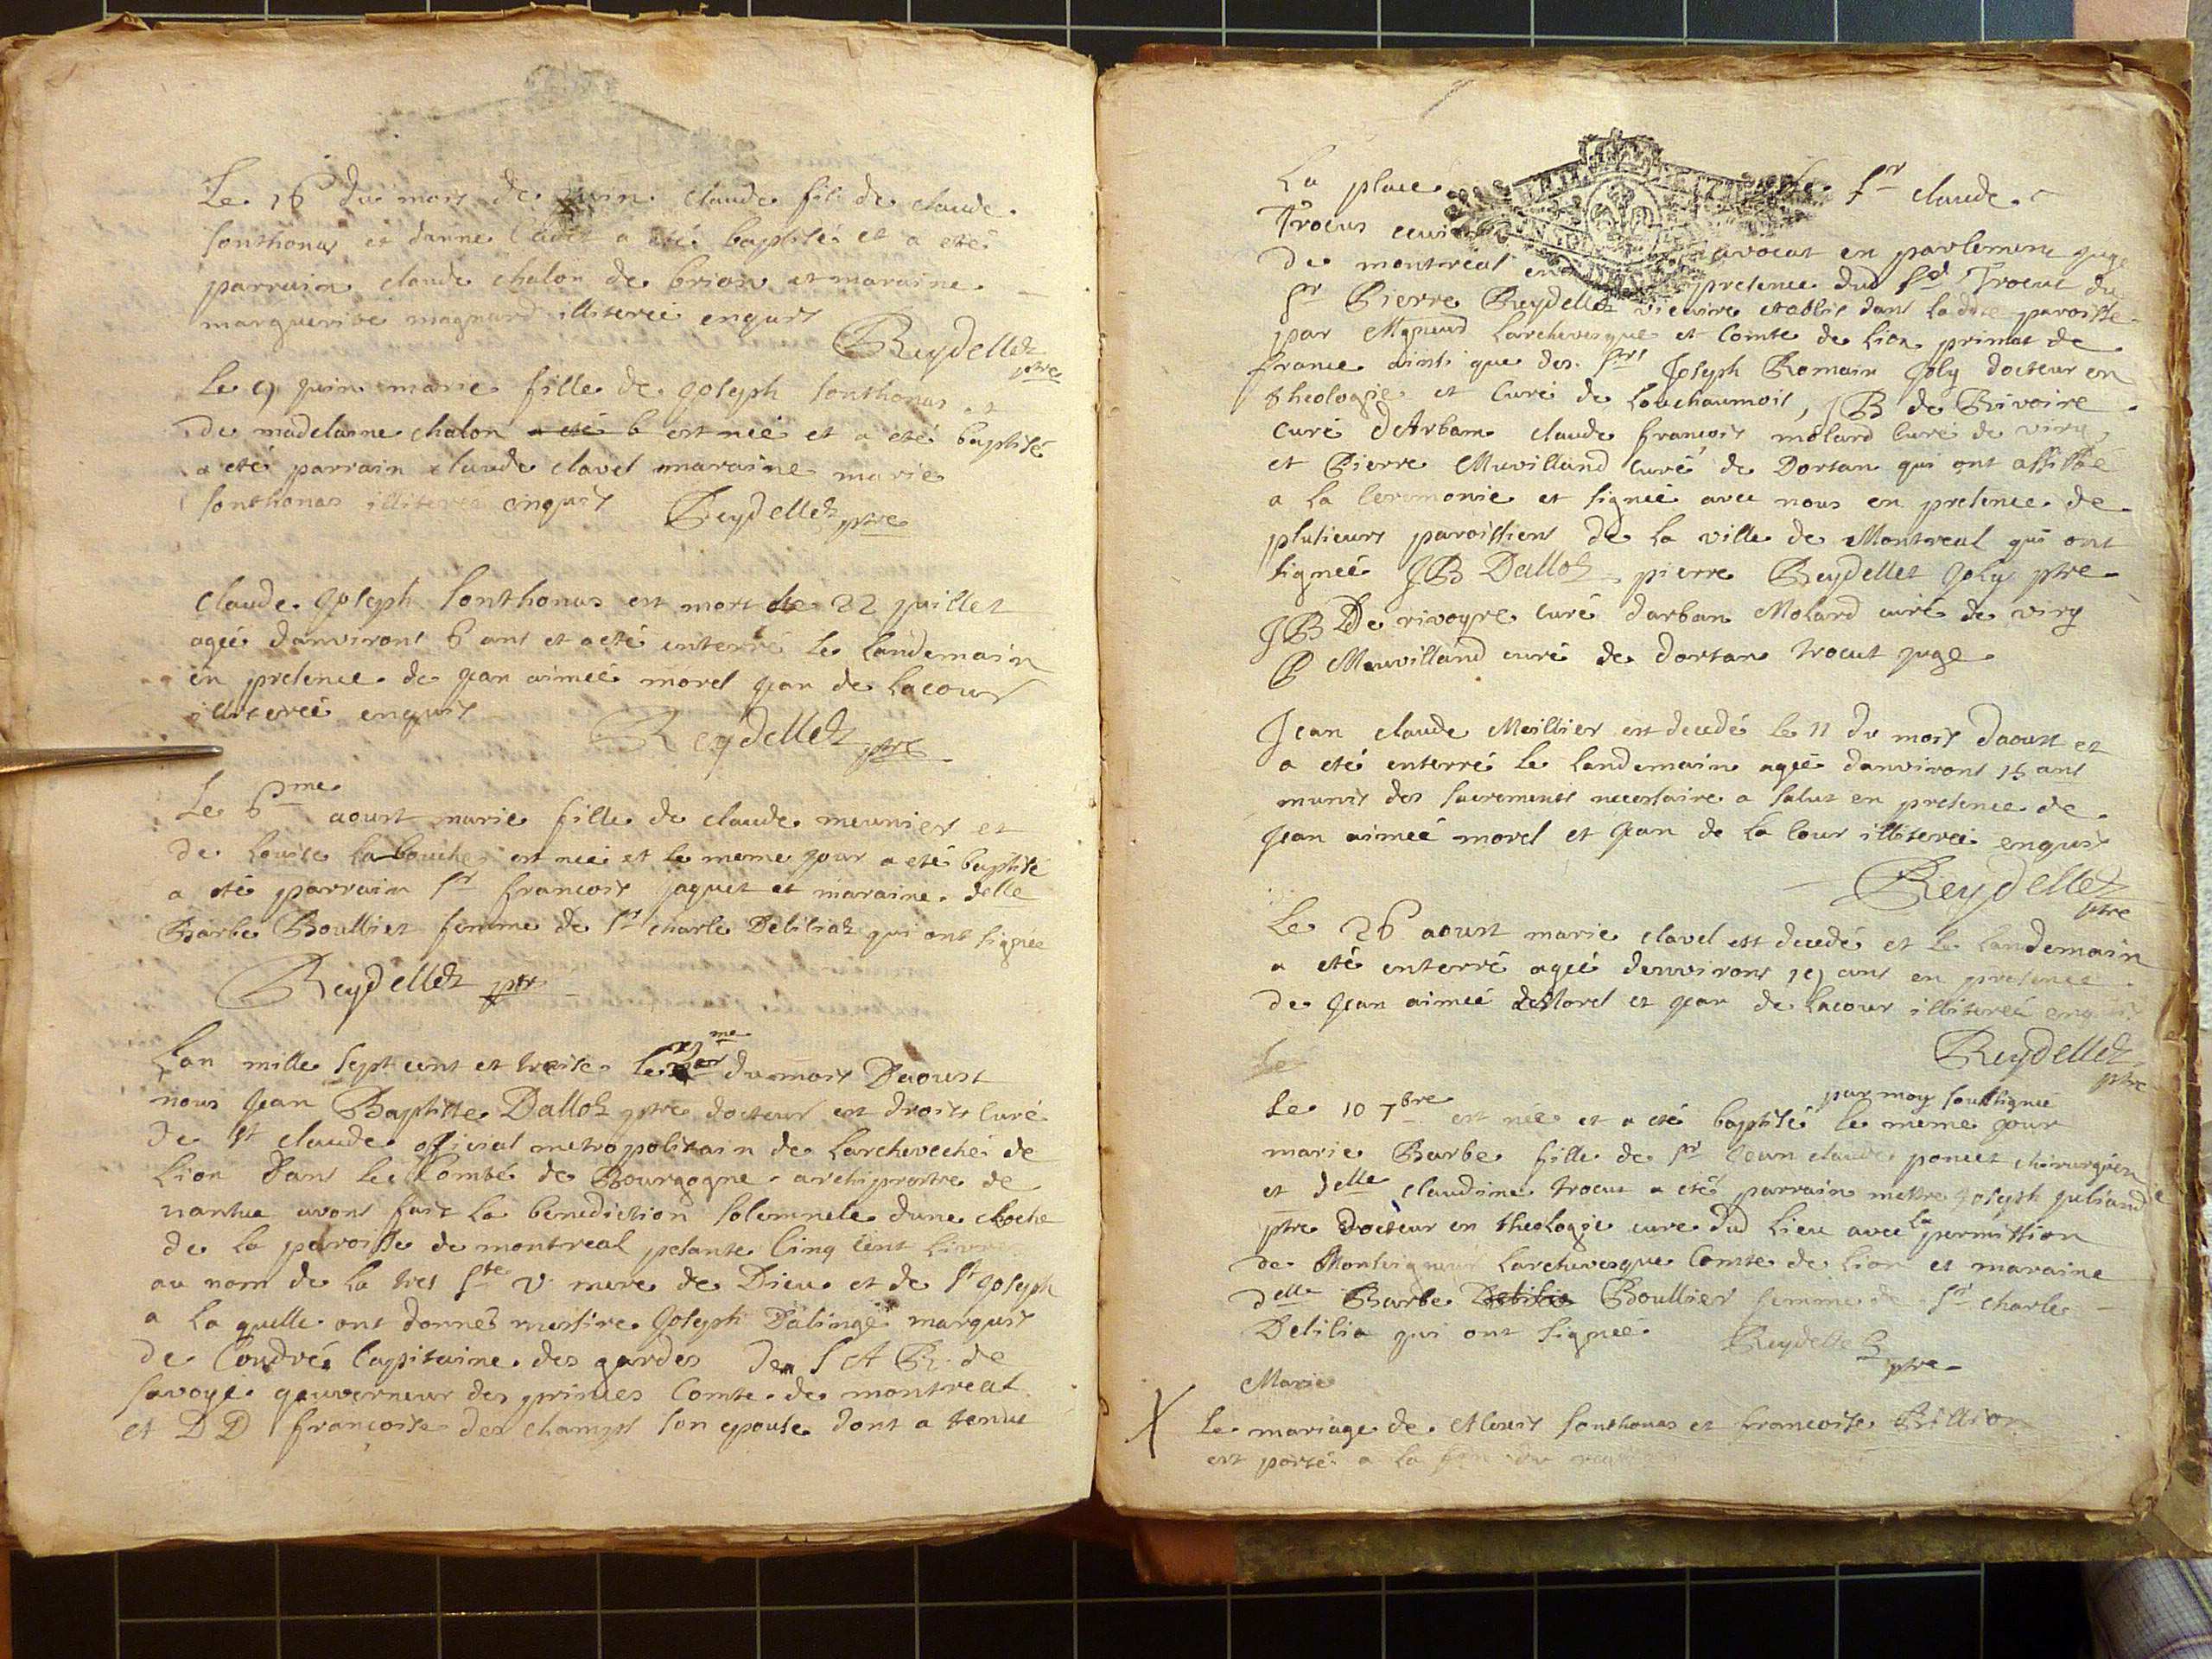 Le 16 du mois de juin claude fils de claude
sonthonas et danne Clavet a eté baptisé et a eté
parrain claude chalon de brion et maraine
marguerite magnard illiteréé enquis
Reydellet
ptre
Le 9 juin marie fille de joseph sonthonas et
de madelaine chalon a eté b est néé et a eté baptisé
a eté parrain claude clavel maraine marie
sonthonas illiteréé enquis Reydellet ptre
Claude joseph sonthonas est mort le 22 juillet
agéé danvirons 6 ans et a eté enterré le landemain
en presence de jean aiméé morel jean de lacour
illiteréé enquis
Reydellet ptre
Le 6me aoust marie fille de claude meunier et
de Louise la bouche est néé et le meme jour a eté baptisé
a eté parrain sr francois jaquet et maraine delle
Barbe Boullier femme de sr charle Delilia qui ont signéé
Reydellet ptre
Lan mille sept cent et treise le me du mois Daoust
nous jean Baptiste Dalloz ptre docteur en droits curé
de st claude official metropolitain de Larcheveché de
Lion dans le Comté de Bourgogne archiprestre de
nantua avons fait la benediction solemnele dune cloche
de la paroisse de montreal pesante cinq cent livres
au nom de la tres ste v mere de Dieu et de st joseph
a la quelle ont donnés messire joseph Dalinge marquis
de Coudréé capitaine des gardes de S A R de
savoye gouverneur des princes Comte de montreal
et D D francoise des champs son epouse dont a tenue
La place sr claude
Trocus
de montreal avocat en parlement juge
en presence dud sr Trocut du
sr Pierre Reydellet vicaire etablis dans ladite paroisse
par Mgneur Larchevesque et Comte de Lion primat de
france ainsi que des srs Joseph Romain Joly docteur en
theologie et curé de Louchaumois, JB de Rivoire
curé dArbam claude francois molard curé de viry
et Pierre Muvilland curé de Dortan qui ont assisté
a la ceremonie et signéé avec nous en presence de
plusieurs paroissiens de la ville de Montreal qui ont
signéé JB Dalloz pierre Reydellet Joly ptre
JB De rivoyre curé darban Molard curé de viry
P Muvilland curé de dortan trocut juge
Jean claude Meillier est decedé le 11 du mois daoust et
a eté enterré le landemain agéé danvirons 15 ans
munis des sacrements necessaire a salut en presence de
jean aiméé morel et jean de la cour illiteréé enquis
Reydellet
ptre
Le 26 aoust marie clavel est decedé et le landemain
a eté enterré agéé denvirons 19 ans en presence
de jean aiméé Morel et jean de lacour illiteréé enquis
Reydellet
ptre
Le
par moy soussignéé
Le 10 7bre est néé et a eté baptisé le meme jour
marie Barbe fille de sr jean claude poncet chirurgien
et delle claudine trocut a eté parrain mettre joseph juliand
ptre Docteur en theologie cure dud lieu avec la permission
de Monseigneur Larchevesque Comte de Lion et maraine
delle Barbe Delilia Boullier femme de sr charle
Delilia qui ont signéé Reydellet
ptre
Marie
X Le mariage de Alouis sonthonas et francoise Billion
est porté a la fin du